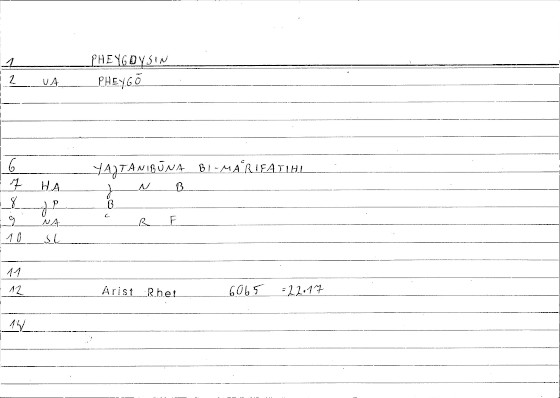 1 PHEYGOYSIN
2 UA PHEYGŌ
6 YAJTANIBŪNA BI-MAʿRIFATIHI
7 HA J N B
8 JP B
9 NA ʿ R F
10 SL
11
12 Arist Rhet 6065 =22.17
14